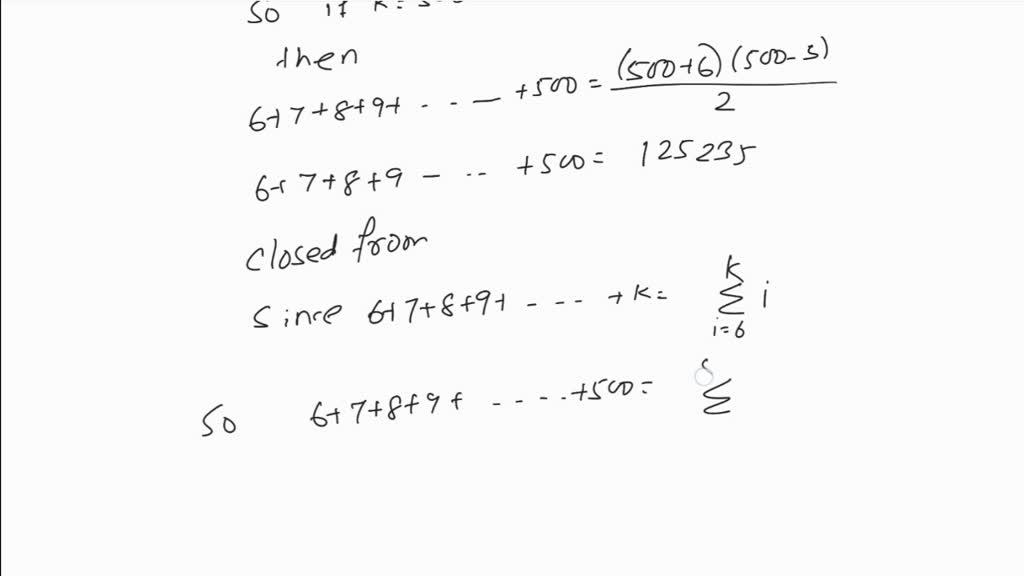 So if K =
then
6+7+8+9+ - - — +500 = (500+6)(500-5)/2
6+7+8+9 - -- +500 = 125235
closed from
Since 6+7+8+9+ - - -- + K = K Σ i=6 i
So 6+7+8+9+ - - - - . +500 = Σ